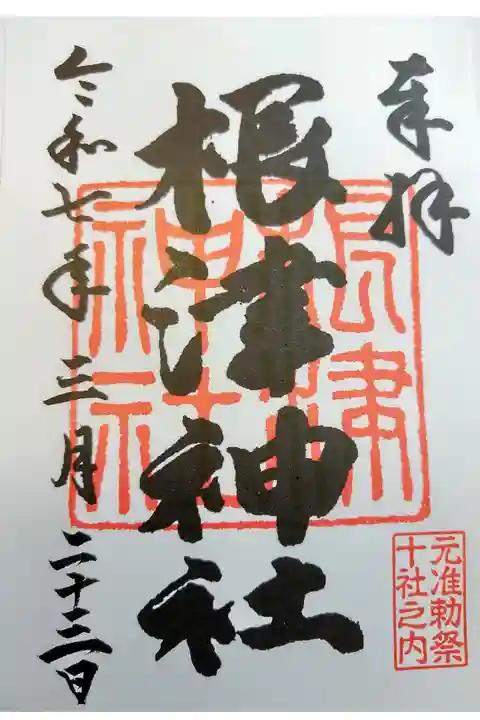 奉拝
根津神社
根津神社
令和七年三月二十三日
元准勅祭
十社之内